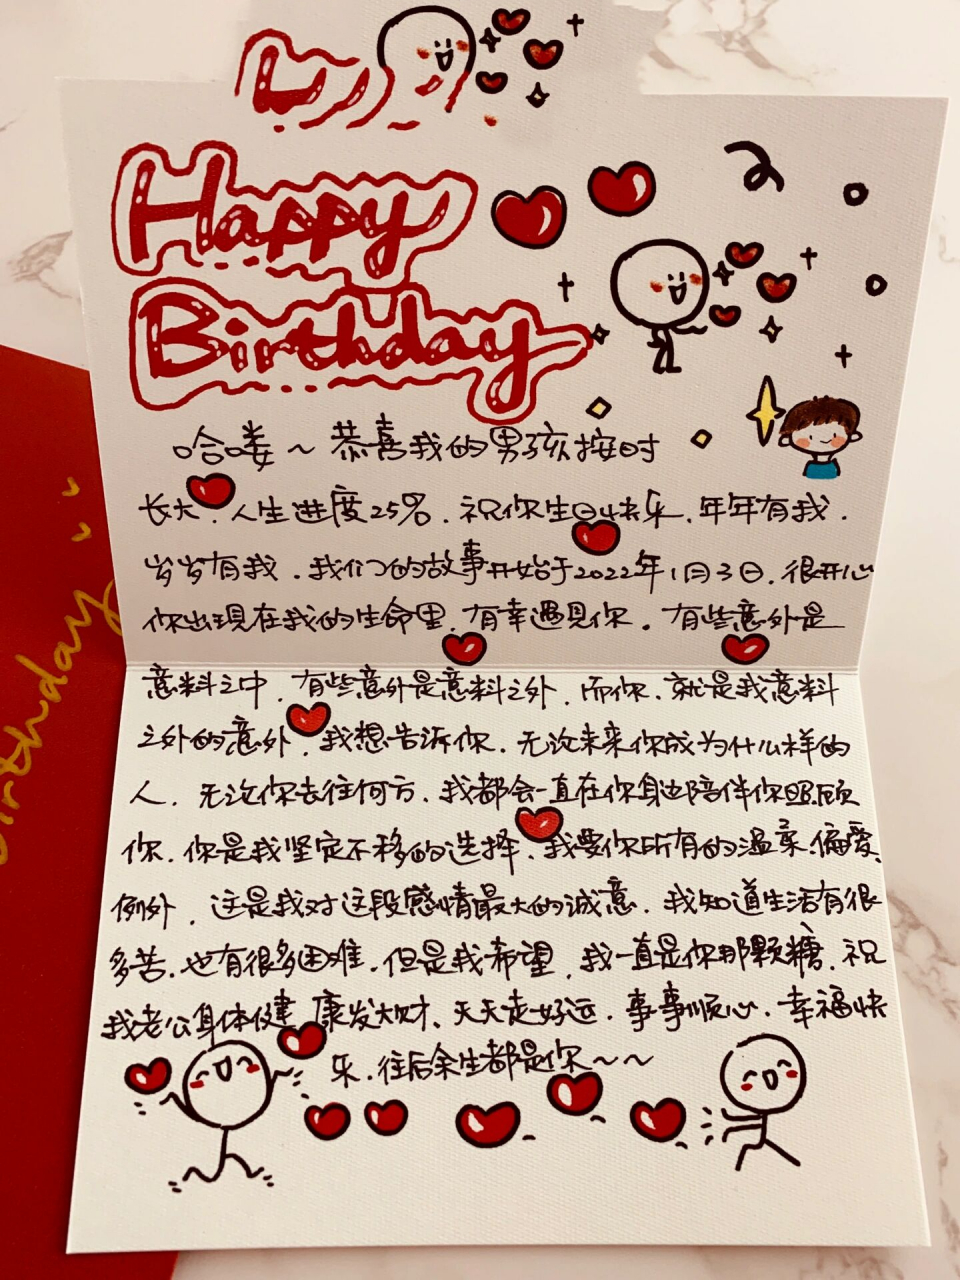 Happy
Birthday
哈喽～恭喜我的男孩按时
长大，人生进度25%．祝你生日快乐．年年有我．
岁岁有我．我们的故事开始于2022年1月3日．很开心
你出现在我的生命里，有幸遇见你．有些意外是
意料之中，有些意外是意料之外，而你．就是我意料
之外的意外，我想告诉你．无论未来你成为什么样的
人．无论你去往何方．我都会一直在你身边陪伴你照顾
你．你是我坚定不移的选择，我要你所有的温柔、偏爱、
例外，这是我对这段感情最大的诚意．我知道生活有很
多苦．也有很多困难．但是我希望，我一直是你那颗糖．祝
我老公身体健康发大财．天天走好运．事事顺心．幸福快
乐．往后余生都是你～～
Birthday